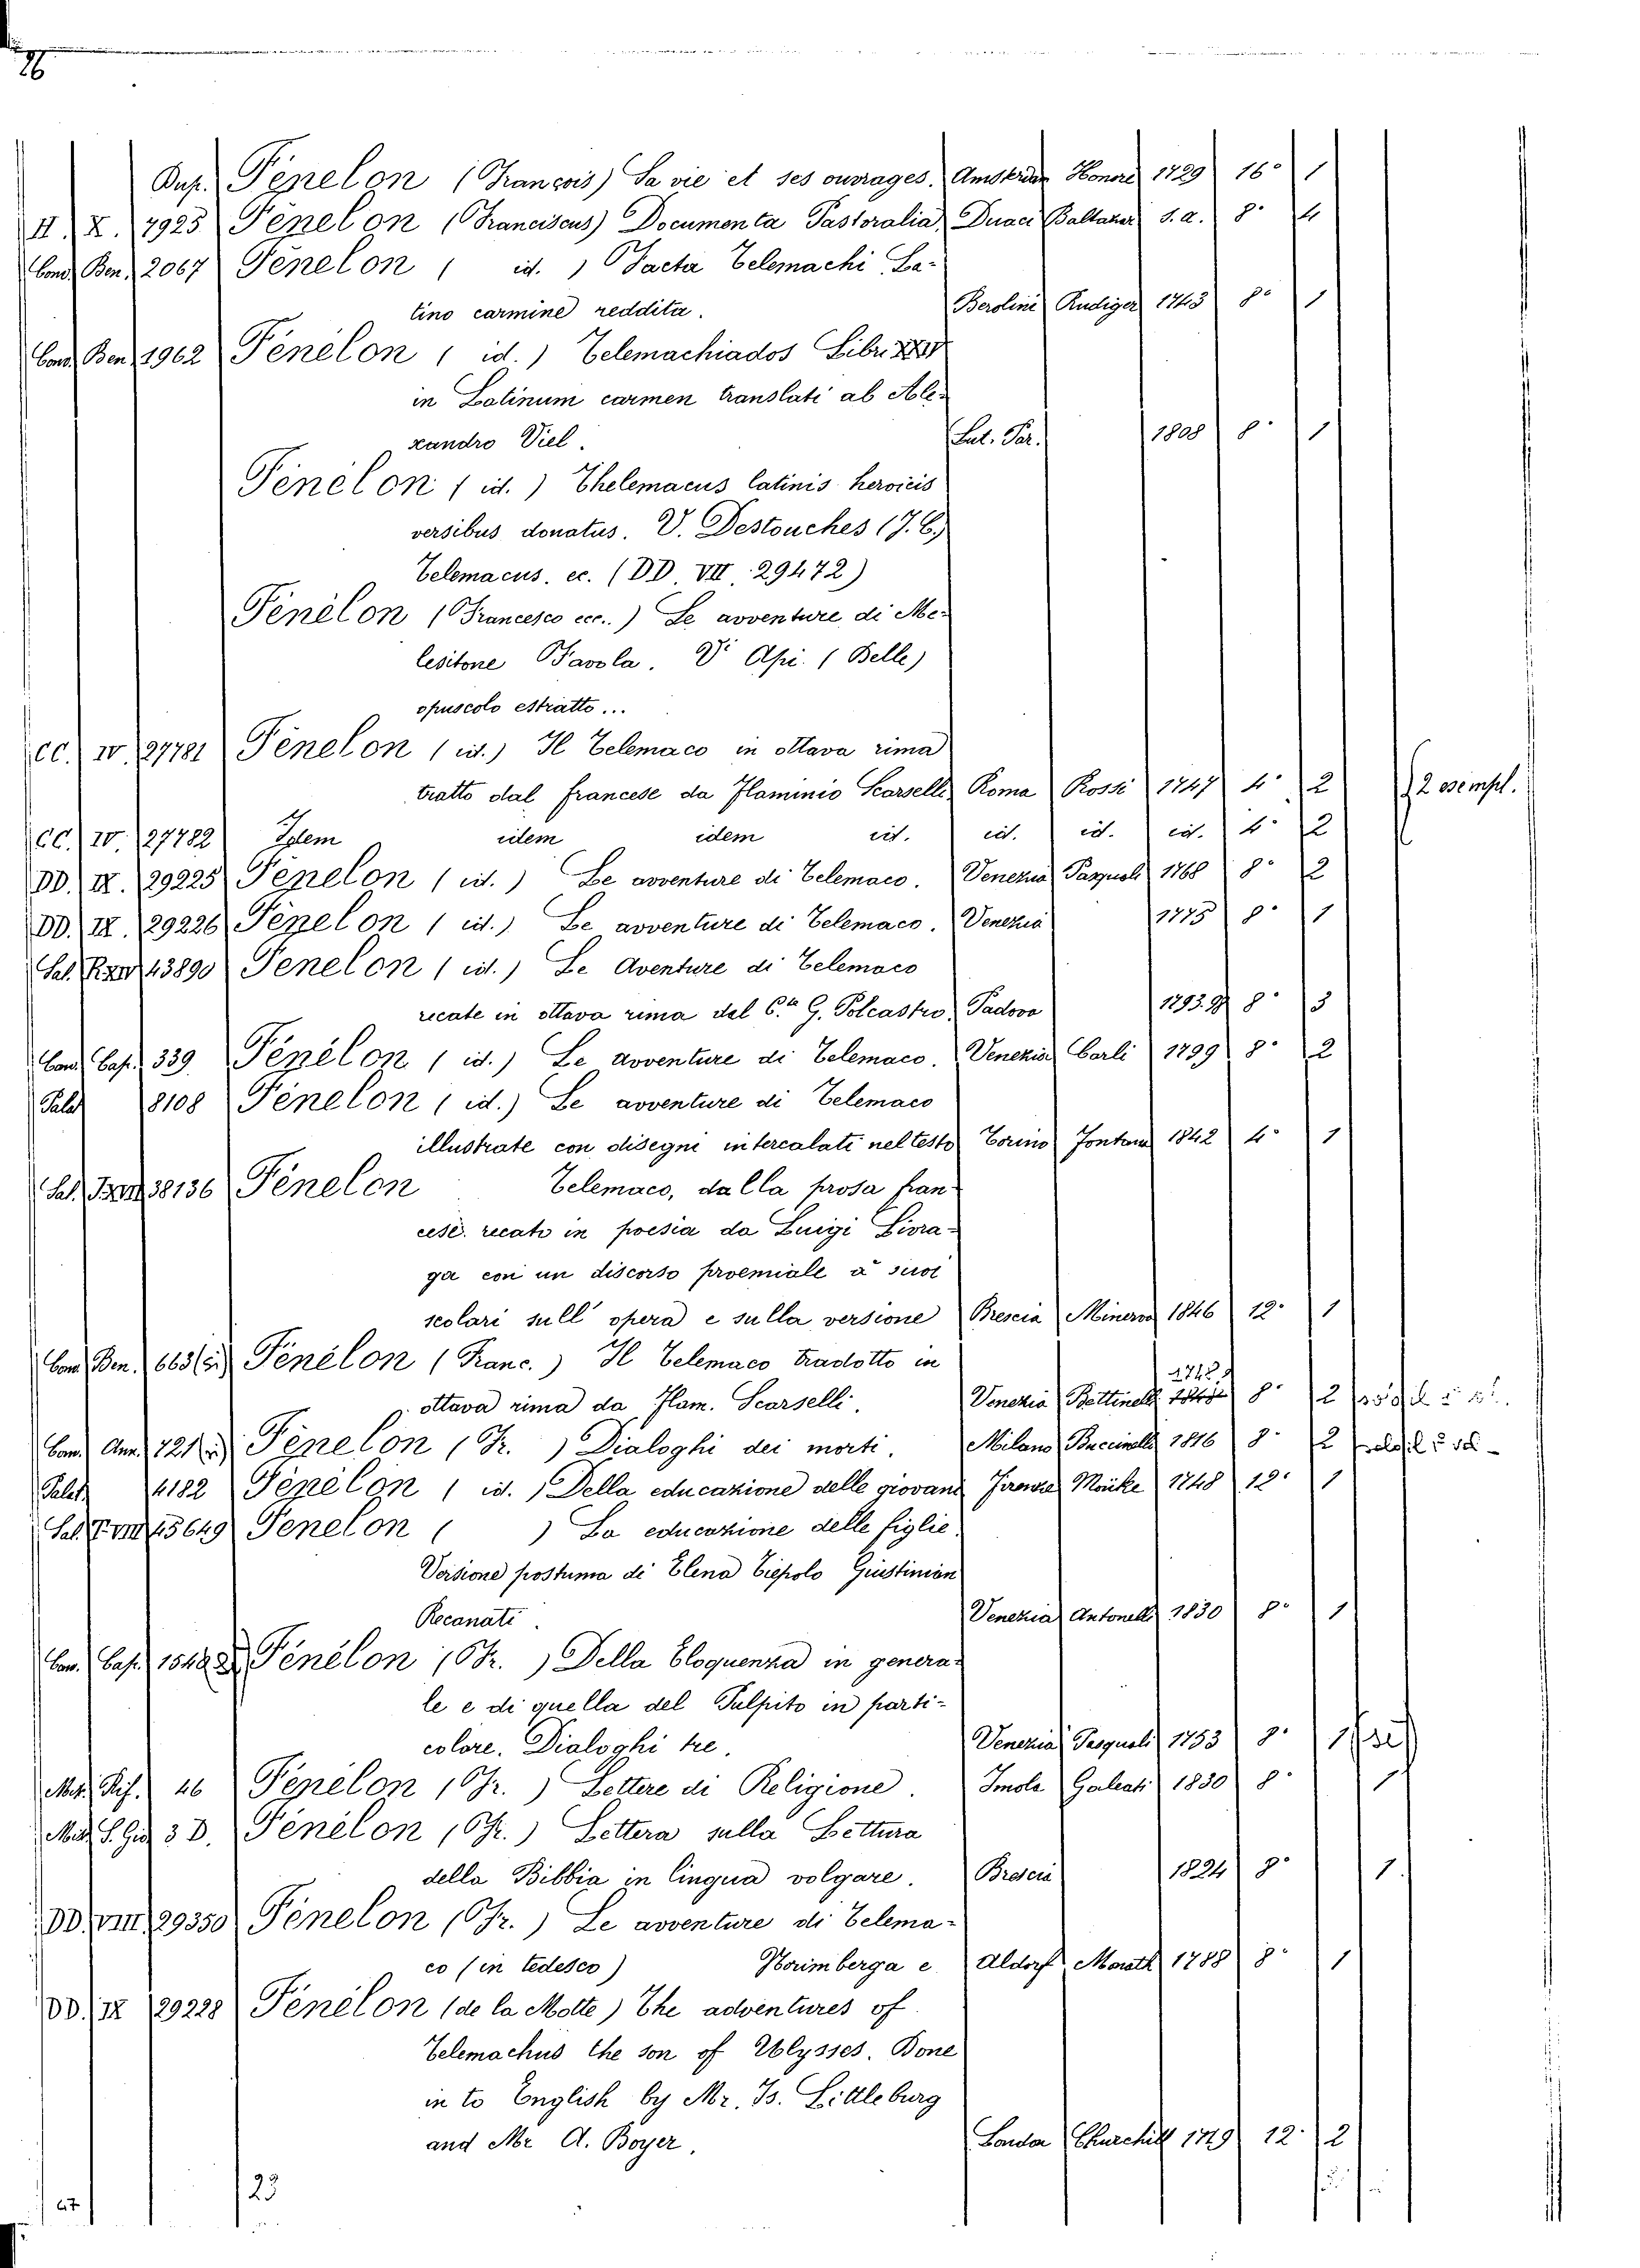 26
Dup. Fénelon (François) Sa vie et ses ouvrages. Amsterdam Honoré 1729 16° 1
II. X. 7925 Fénelon (Franciscus) Documenta Pastoralia, Duaci s. a. 8° 4
Cons. Ben. 2067 Fénelon ( id. ) Facta Telemachi La-
tino carmine reddita. Berolini Rudiger 1743 8° 1
Cons. Ben. 1962 Fénélon ( id. ) Telemachiados Libri XXIV
in Latinum carmen translati ab Ale-
xandro Viel. Lut. Par. 1808 8° 1
Fénélon ( id. ) Thelemacus latinis heroicis
versibus donatus. V. Destouches (J. C.)
Telemacus. ec. (DD. VII. 29472)
Fénélon (Francesco ecc..) Le avventure di Me-
lesitone Favola. V. Api. (Belle)
opuscolo estratto...
CC. IV. 27781 Fénelon ( id. ) Il Telemaco in ottava rima
tratto dal francese da Flaminio Scarselli Roma Rossi 1747 4° 2 2 esempl.
CC. IV. 27782 Idem idem idem id. id. id. id. 4° 2
DD. IX. 29225 Fénelon ( id. ) Le avventure di Telemaco. Venezia Pasquali 1768 8° 2
DD. IX. 29226 Fénelon ( id. ) Le avventure di Telemaco. Venezia 1775 8° 1
Sal. 43890 Fenelon ( id. ) Le Aventure di Telemaco
recate in ottava rima dal C.te G. Polcastro, Padova 1793. 8° 3
Cons. Cap. 339 Fénélon ( id. ) Le avventure di Telemaco. Venezia Carli 1799 8° 2
Palat. 8108 Fénelon ( id. ) Le avventure di Telemaco
illustrate con disegni intercalati nel testo Torino Fontana 1842 4° 1
Sal. 38136 Fénelon Telemaco, dalla prosa fran-
cese. recato in poesia da Luigi Livra-
ga con un discorso proemiale a' suoi
scolari sull' opera e sulla versione Brescia Minerva 1846 12° 1
Cons. Ben. 663 Fénélon (Franc.) Il Telemaco tradotto in
ottava rima da Flam. Scarselli. Venezia Bettinelli 1748 8° 2
Cons. Ann. 121 Fénelon (Fr. ) Dialoghi dei morti. Milano Buccinelli 1816 8° 2
Palat. 4182 Fénélon ( id. ) Della educazione delle giovani Firenze Moücke 1748 12° 1
Sal. F. VIII 45649 Fenelon ( ) La educazione delle figlie.
Versione postuma di Elena Tiepolo Giustinian
Recanati. Venezia Antonelli 1830 8° 1
Con. Cap. 1548 Fénélon (Fr. ) Della Eloquenza in genera-
le e di quella del Pulpito in parti-
colore. Dialoghi tre. Venezia Pasquali 1753 8° 1
Rif. 46 Fénélon (Fr. ) Lettere di Religione. Imola Galeati 1830 8° 1
S. Giu. 3 D. Fénélon (Fr. ) Lettera sulla Lettura
della Bibbia in lingua volgare. Brescia 1824 8° 1.
DD. VIII. 29350 Fénelon (Fr. ) Le avventure di Telema-
co (in tedesco) Norimberga e Aldorf Morath 1788 8° 1
DD. IX 29228 Fénélon (de la Motte) The adventures of
Telemachus the son of Ulysses. Done
in to English by Mr. Is. Littleburg
and Mr A. Boyer. London Churchill 1719 12° 2
23